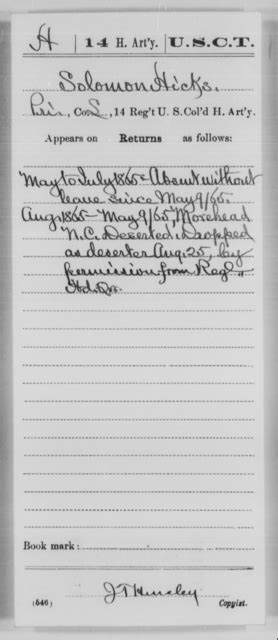 H | 14 H. Art'y. | U.S.C.T.
Solomon Hicks.
Priv., Co. L, 14 Reg't U. S. Col'd H. Art'y.
Appears on Returns as follows:
May to July 1865 - Absent without
leave since May 9/65.
Aug. 1865 - May 9/65, Morehead
N.C. Deserted. Dropped
as deserter Aug. 25, by
permission from Regl.
Hd. Qrs.
Book mark:
J T Hensley
(546) Copyist.